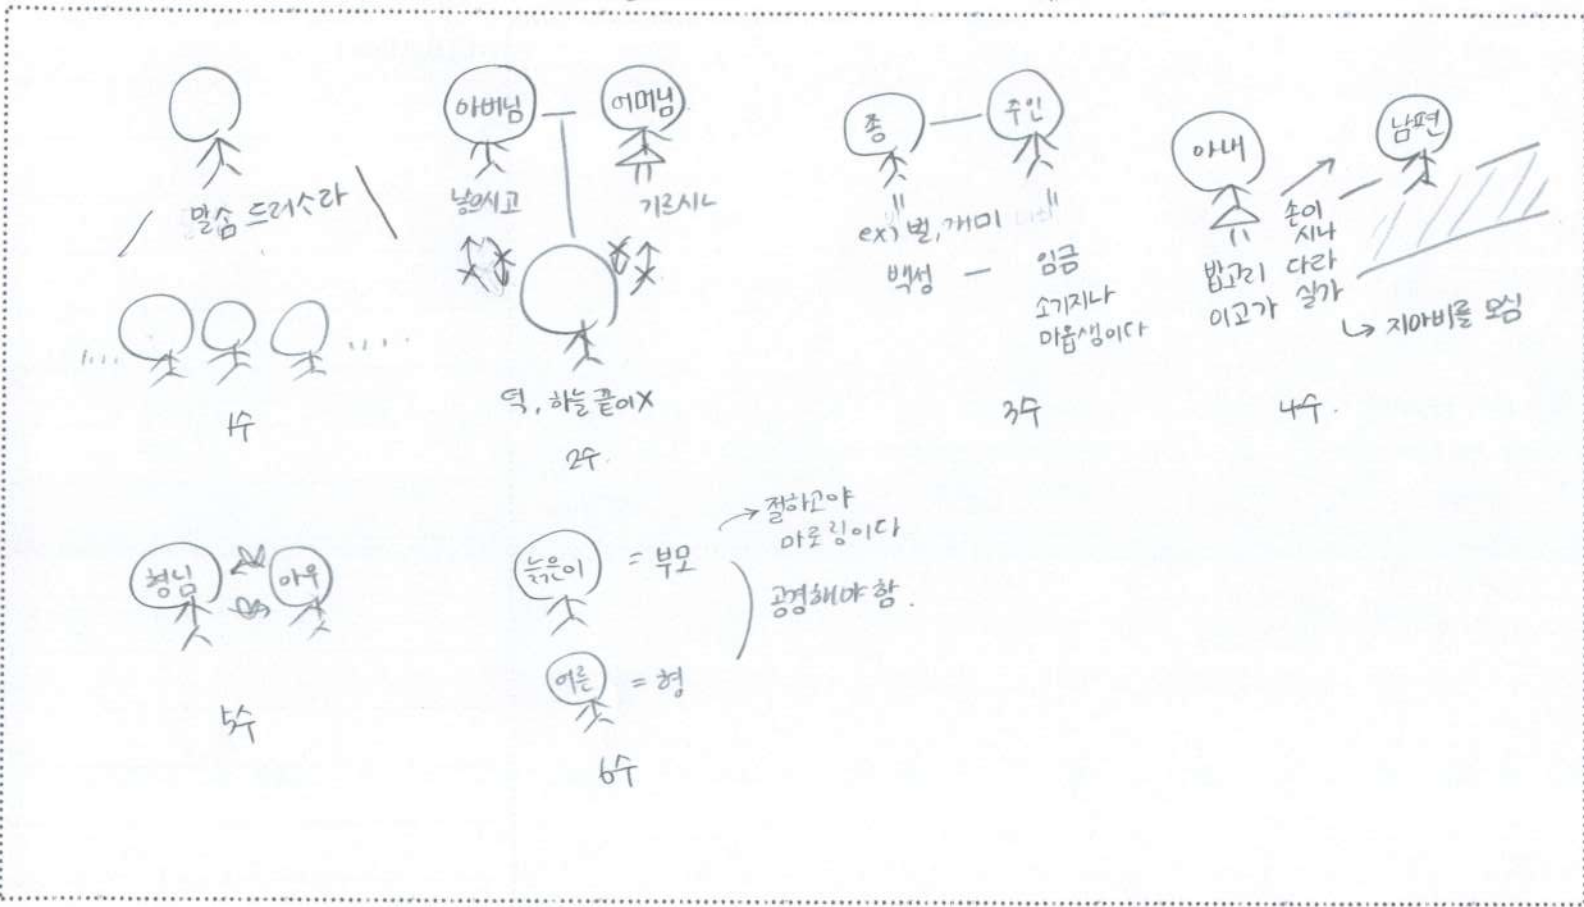 말솜 드러소라
1수
아버님
어머님
낳으시고
기르시니
덕, 하늘 끝이X
2수.
종
주인
ex) 벌, 개미
백성 — 임금
소기지나
마음생이다
3수
아내
남편
손이
시나
밥고리 다라
이고가 실가
↳ 지아비를 모심
4수.
형님
아우
5수
늙은이 = 부모
→ 절하고야
마로링이다
공경해야 함.
어른 = 형
6수